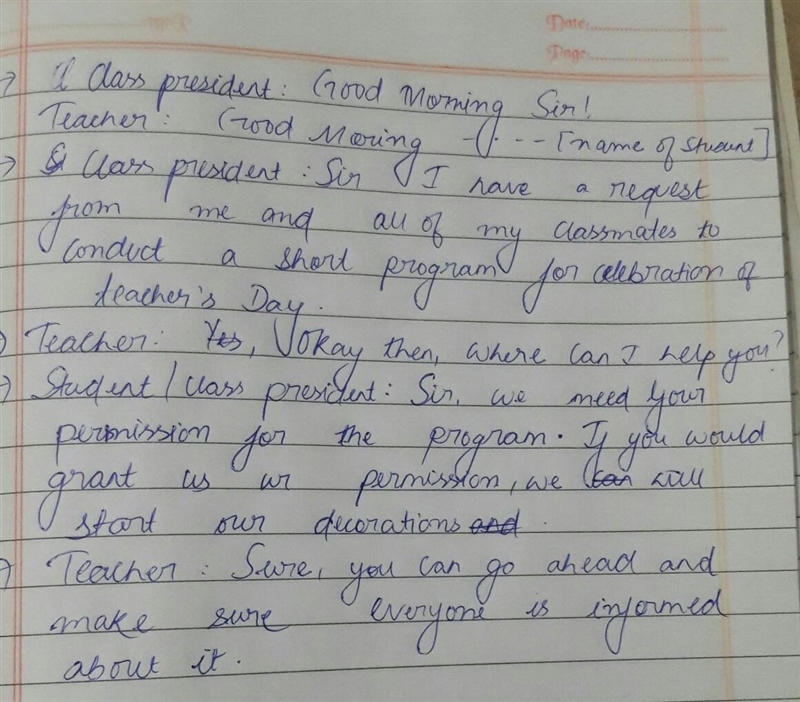 Date:
Page:
Class president: Good Morning Sir!
Teacher: Good Moring ---- [name of Stuount]
Class president: Sir I have a request
from me and all of my classmates to
conduct a short program for celebration of
teacher's Day.
Teacher: Yes, Okay then, where can I help you?
Student/class president: Sir, we need your
permission for the program. If you would
grant us ur permission, we can will
start our decorations and.
Teacher: Sure, you can go ahead and
make sure everyone is informed
about it.